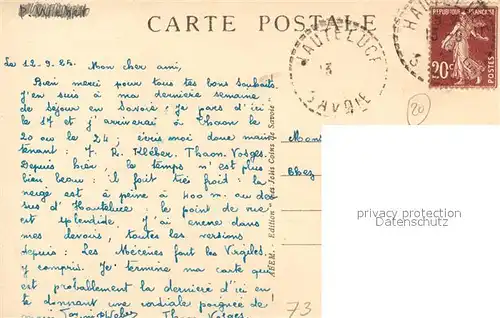 CARTE POSTALE
Le 12.9.25. Mon cher ami,
Bien merci pour tous tes bons souhaits.
J'en suis à ma dernière semaine
de séjour en Savoie ; je pars d'ici
le 17 et j'arriverai à Thaon le
20 ou le 24 ; écris moi donc main
tenant : 7. R. Kléber. Thaon. Vosges.
Depuis hier le temps n'est plus
bien beau : il fait très froid : la
neige est à peine à 400 m. au des
sus d'Hauteluce : le point de vue
est splendide. J'ai encore dans
mes devoirs, toutes les versions
depuis : Les Mécènes font les Virgiles.
y compris. Je termine ma carte qui
est probablement la dernière d'ici en
te donnant une cordiale poignée de
Thaon Vosges.
ABEM. - Edition "Les Jolis Coins de Savoie"
HAUTELUCE
SAVOIE
HAU
REPUBLIQUE FRANÇAISE
20c
POSTES
20
privacy protection
Datenschutz
73